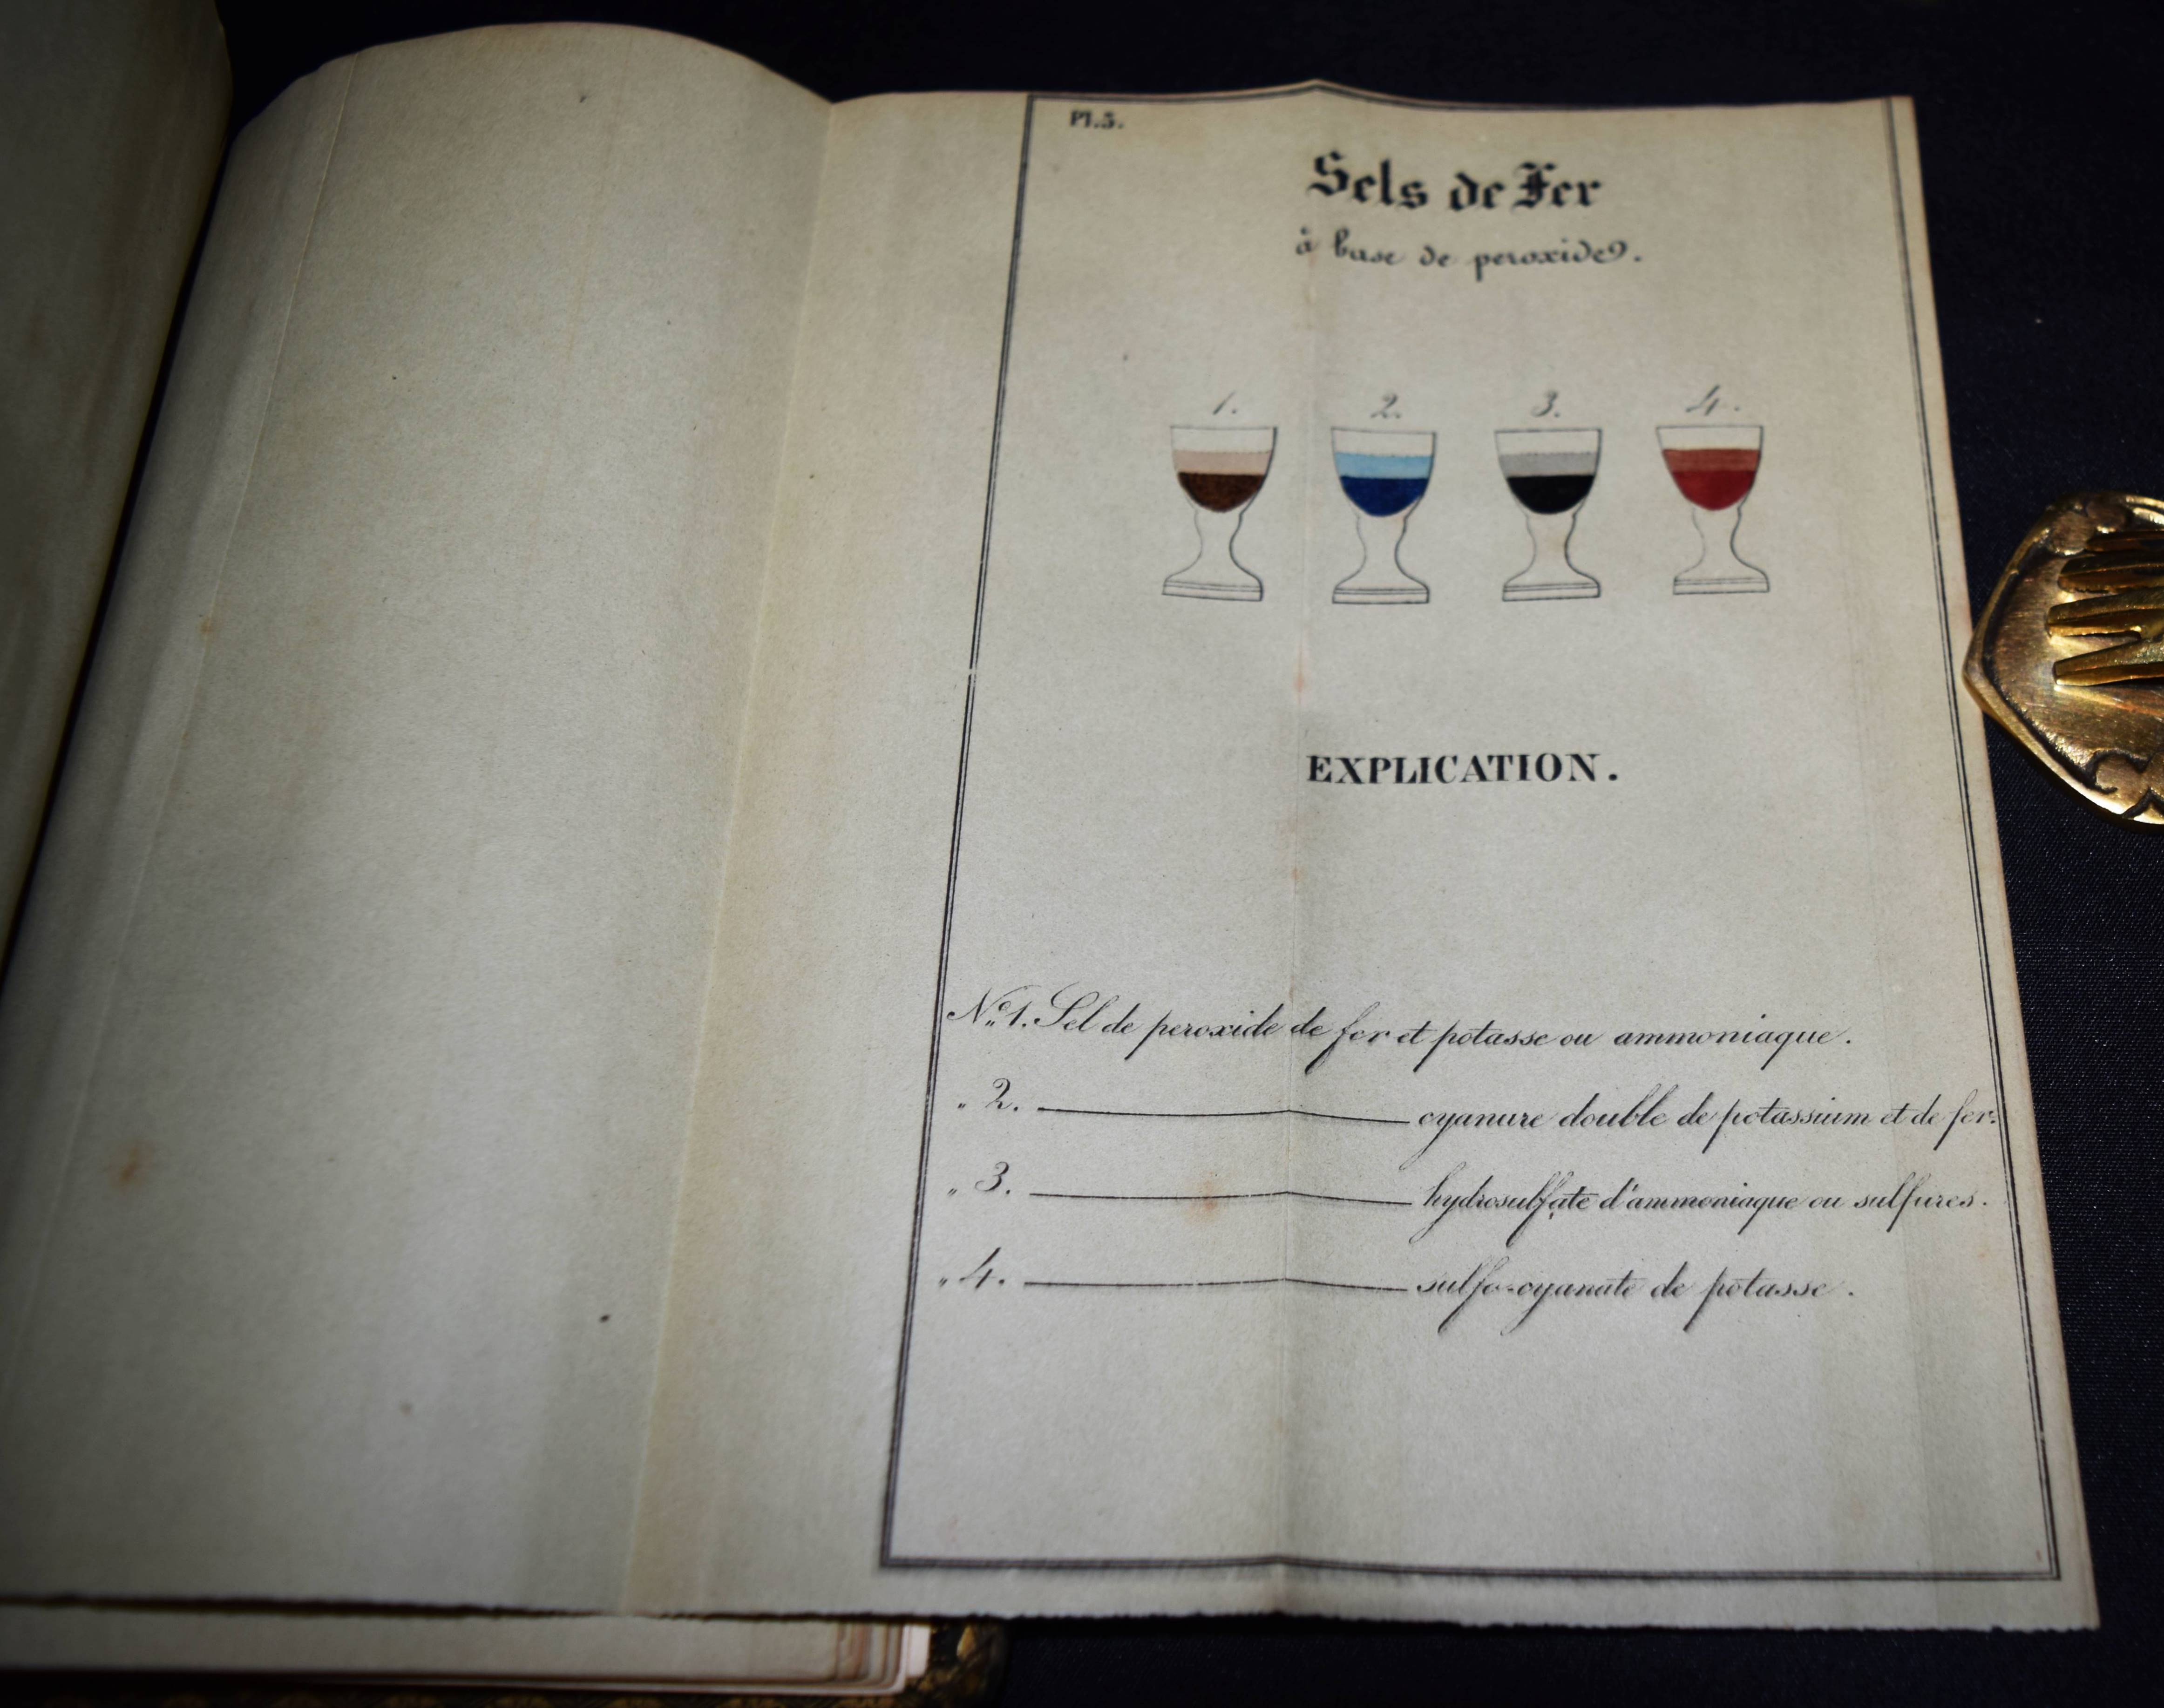 Pl.5.
Sels de Fer
à base de peroxide.
1. 2. 3. 4.
EXPLICATION.
No. 1. Sel de peroxide de fer et potasse ou ammoniaque.
" 2. ——— cyanure double de potassium et de fer.
" 3. ——— hydrosulfate d'ammoniaque ou sulfures.
" 4. ——— sulfo-cyanate de potasse.